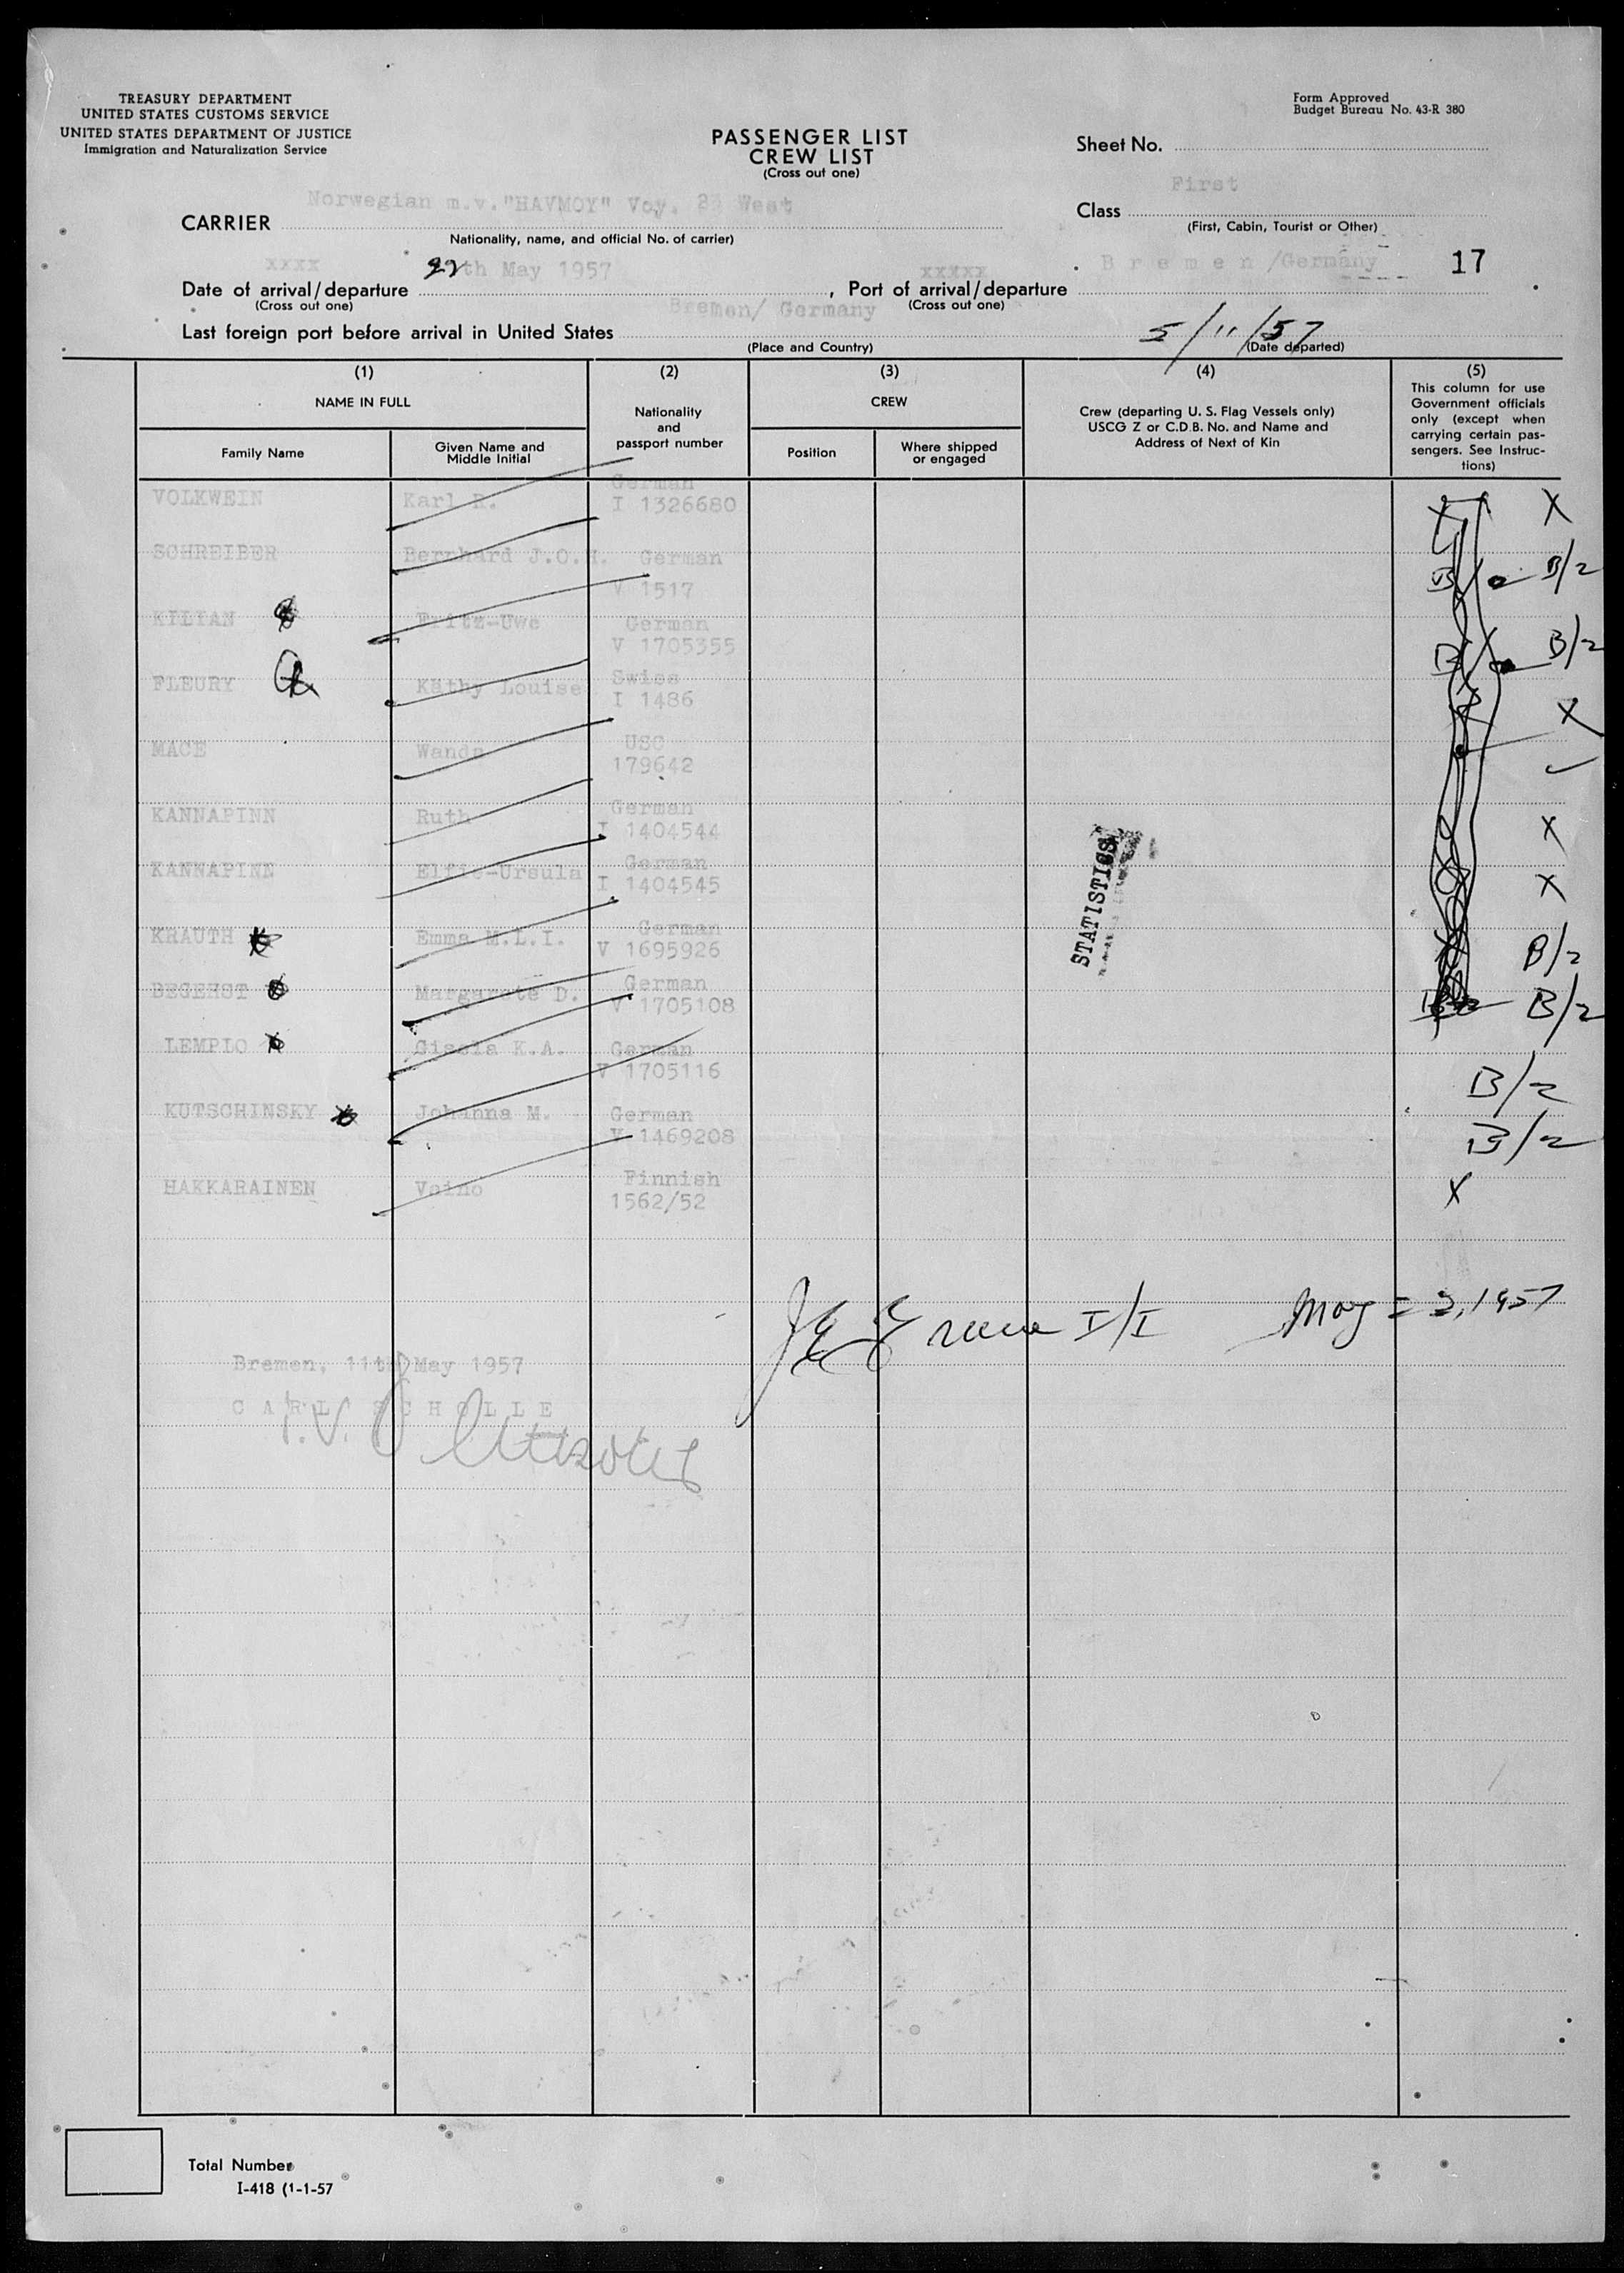 TREASURY DEPARTMENT
UNITED STATES CUSTOMS SERVICE
UNITED STATES DEPARTMENT OF JUSTICE
Immigration and Naturalization Service
Form Approved
Budget Bureau No. 43-R 380
PASSENGER LIST
CREW LIST
(Cross out one)
Sheet No.
Norwegian m.v. "HAVMOY" Voy. West
CARRIER
Nationality, name, and official No. of carrier)
First
Class
(First, Cabin, Tourist or Other)
xxxx
th May 1957
xxxxx
Bremen/Germany
17
Date of arrival/departure , Port of arrival/departure
(Cross out one) (Cross out one)
Bremen/ Germany
5/11/57
Last foreign port before arrival in United States
(Place and Country) (Date departed)
(1) (2) (3) (4) (5)
NAME IN FULL
Nationality
and
passport number
CREW
Crew (departing U. S. Flag Vessels only)
USCG Z or C.D.B. No. and Name and
Address of Next of Kin
This column for use
Government officials
only (except when
carrying certain pas-
sengers. See Instruc-
tions)
Family Name
Given Name and
Middle Initial
Position
Where shipped
or engaged
VOLKWEIN Karl R. German X
I 1326680
SCHREIBER Bernhard J.O.H. German B/2
V 1517
KILIAN Fritz-Uwe German B/2
V 1705355
FLEURY Käthy Louise Swiss X
I 1486
MACE Wanda USC
179642
KANNAPINN Ruth German X
I 1404544
KANNAPINN Elfie-Ursula German X
I 1404545
KRAUTH Emma M.L.I. German B/2
V 1695926
BEGEHST Margarete D. German B/2
V 1705108
LEMPIO Gisela K.A. German B/2
V 1705116
KUTSCHINSKY Johanna M. German B/2
V 1469208
HAKKARAINEN Veino Finnish X
1562/52
STATISTICS
I/I May 1957
Bremen, 11th May 1957
CARL SCHOLLE
Total Number
I-418 (1-1-57